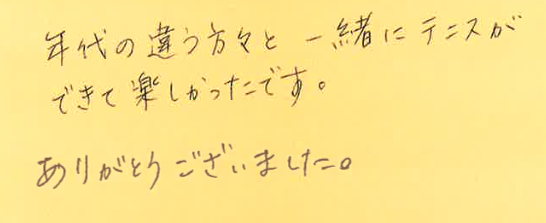 年代の違う方々と一緒にテニスが
できて楽しかったです。
ありがとうございました。